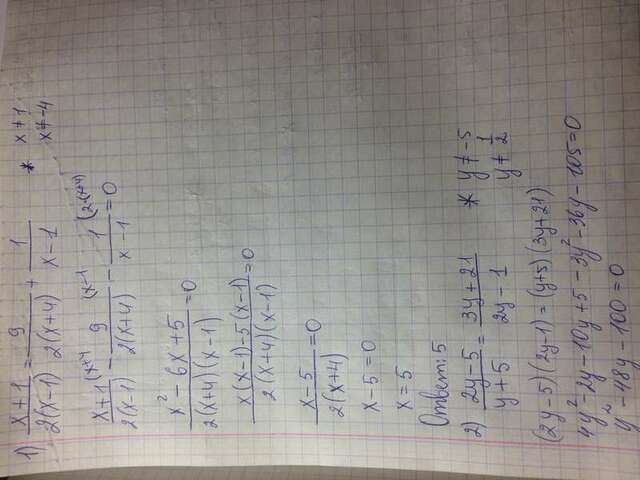 1) (x+1)/(2(x-1)) = 9/(2(x+4)) + 1/(x-1) * x≠1
x≠-4
(x+1)/(2(x-1)) (x+4 - 9/(2(x+4)) (x-1 - 1/(x-1) (2·(x+4) = 0
(x²-6x+5)/(2(x+4)(x-1)) = 0
(x(x-1)-5(x-1))/(2(x+4)(x-1)) = 0
(x-5)/(2(x+4)) = 0
x-5=0
x=5
Ответ: 5
2) (2y-5)/(y+5) = (3y+21)/(2y-1) * y≠-5
y≠1/2
(2y-5)(2y-1)=(y+5)(3y+21)
4y²-2y-10y+5-3y²-36y-105=0
y²-48y-100=0